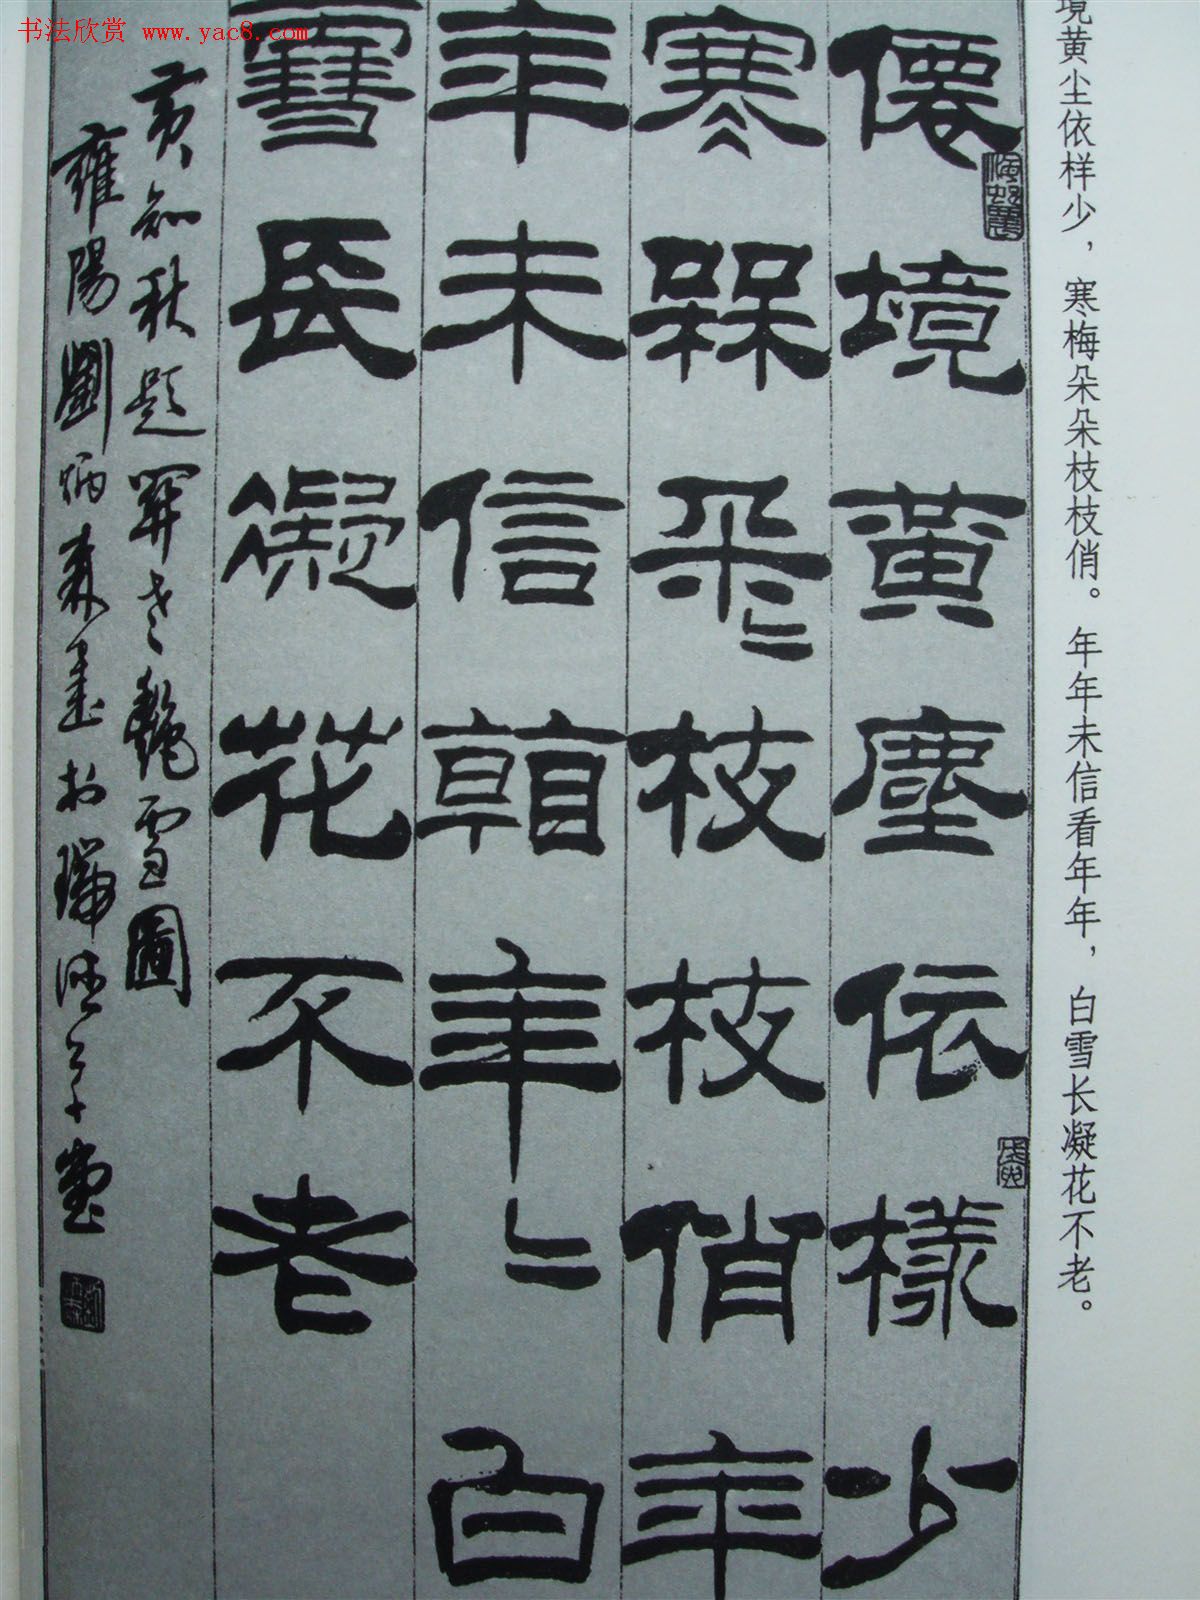 书法欣赏 www.yac8.com
境黄尘依样少，寒梅朵朵枝枝俏。年年未信看年年，白雪长凝花不老。
僊境黄塵依樣少
寒槑朵〻枝枝俏年
年未信䩞年〻白
雪長凝花不老
黄知秋題關老艷雪圖
雍陽劉炳森書於